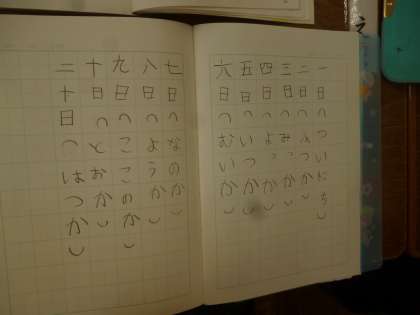 一日(ついにち)
二日(ふつか)
三日(みっか)
四日(よっか)
五日(いつか)
六日(むいか)
七日(なのか)
八日(ようか)
九日(ここのか)
十日(とおか)
二十日(はつか)